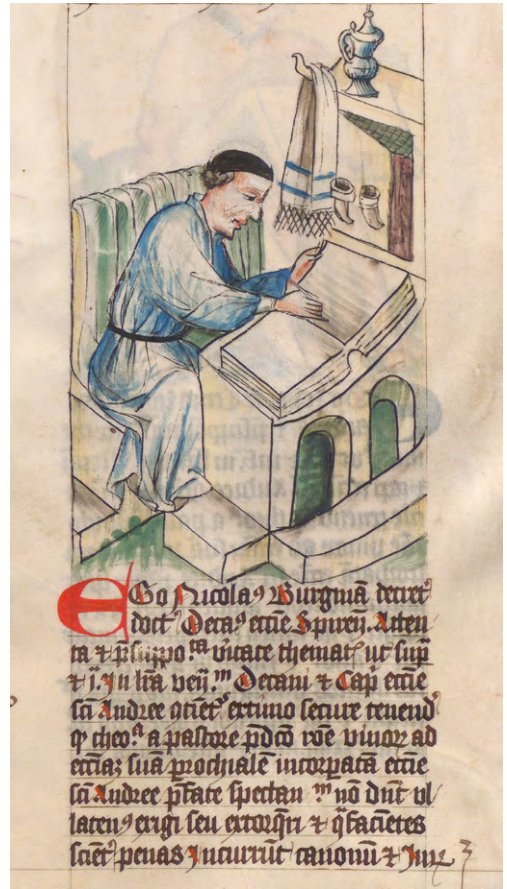 EGo Nicola⁹ Burgmā decret᷒
doct᷒ Deca⁹ eccīe Spireñ. Atten
ta ⁊ p̄suppo.ᵗᵃ v̓itate themat᷒ ut sup̄
⁊ ī. In lr̄a veñ.ᵐ Decani ⁊ Cap̄ eccīe
sc̄i Andree ꝯtiet᷒ extimo secure tenend᷒
ꝙ theo.ᵃ a pastore p̄dc̄o rōe viuoꝝ ad
eccīaꝫ suā ꝑrochialē incorꝑatā eccīe
sc̄i Andree p̄fate spectan ᵐ nō dn̄t vl
laten⁹ erigi seu extorq̄ri ⁊ q̄ faciētes
sciēt᷒ penas Incurrūt canonū ⁊ Iuꝝ